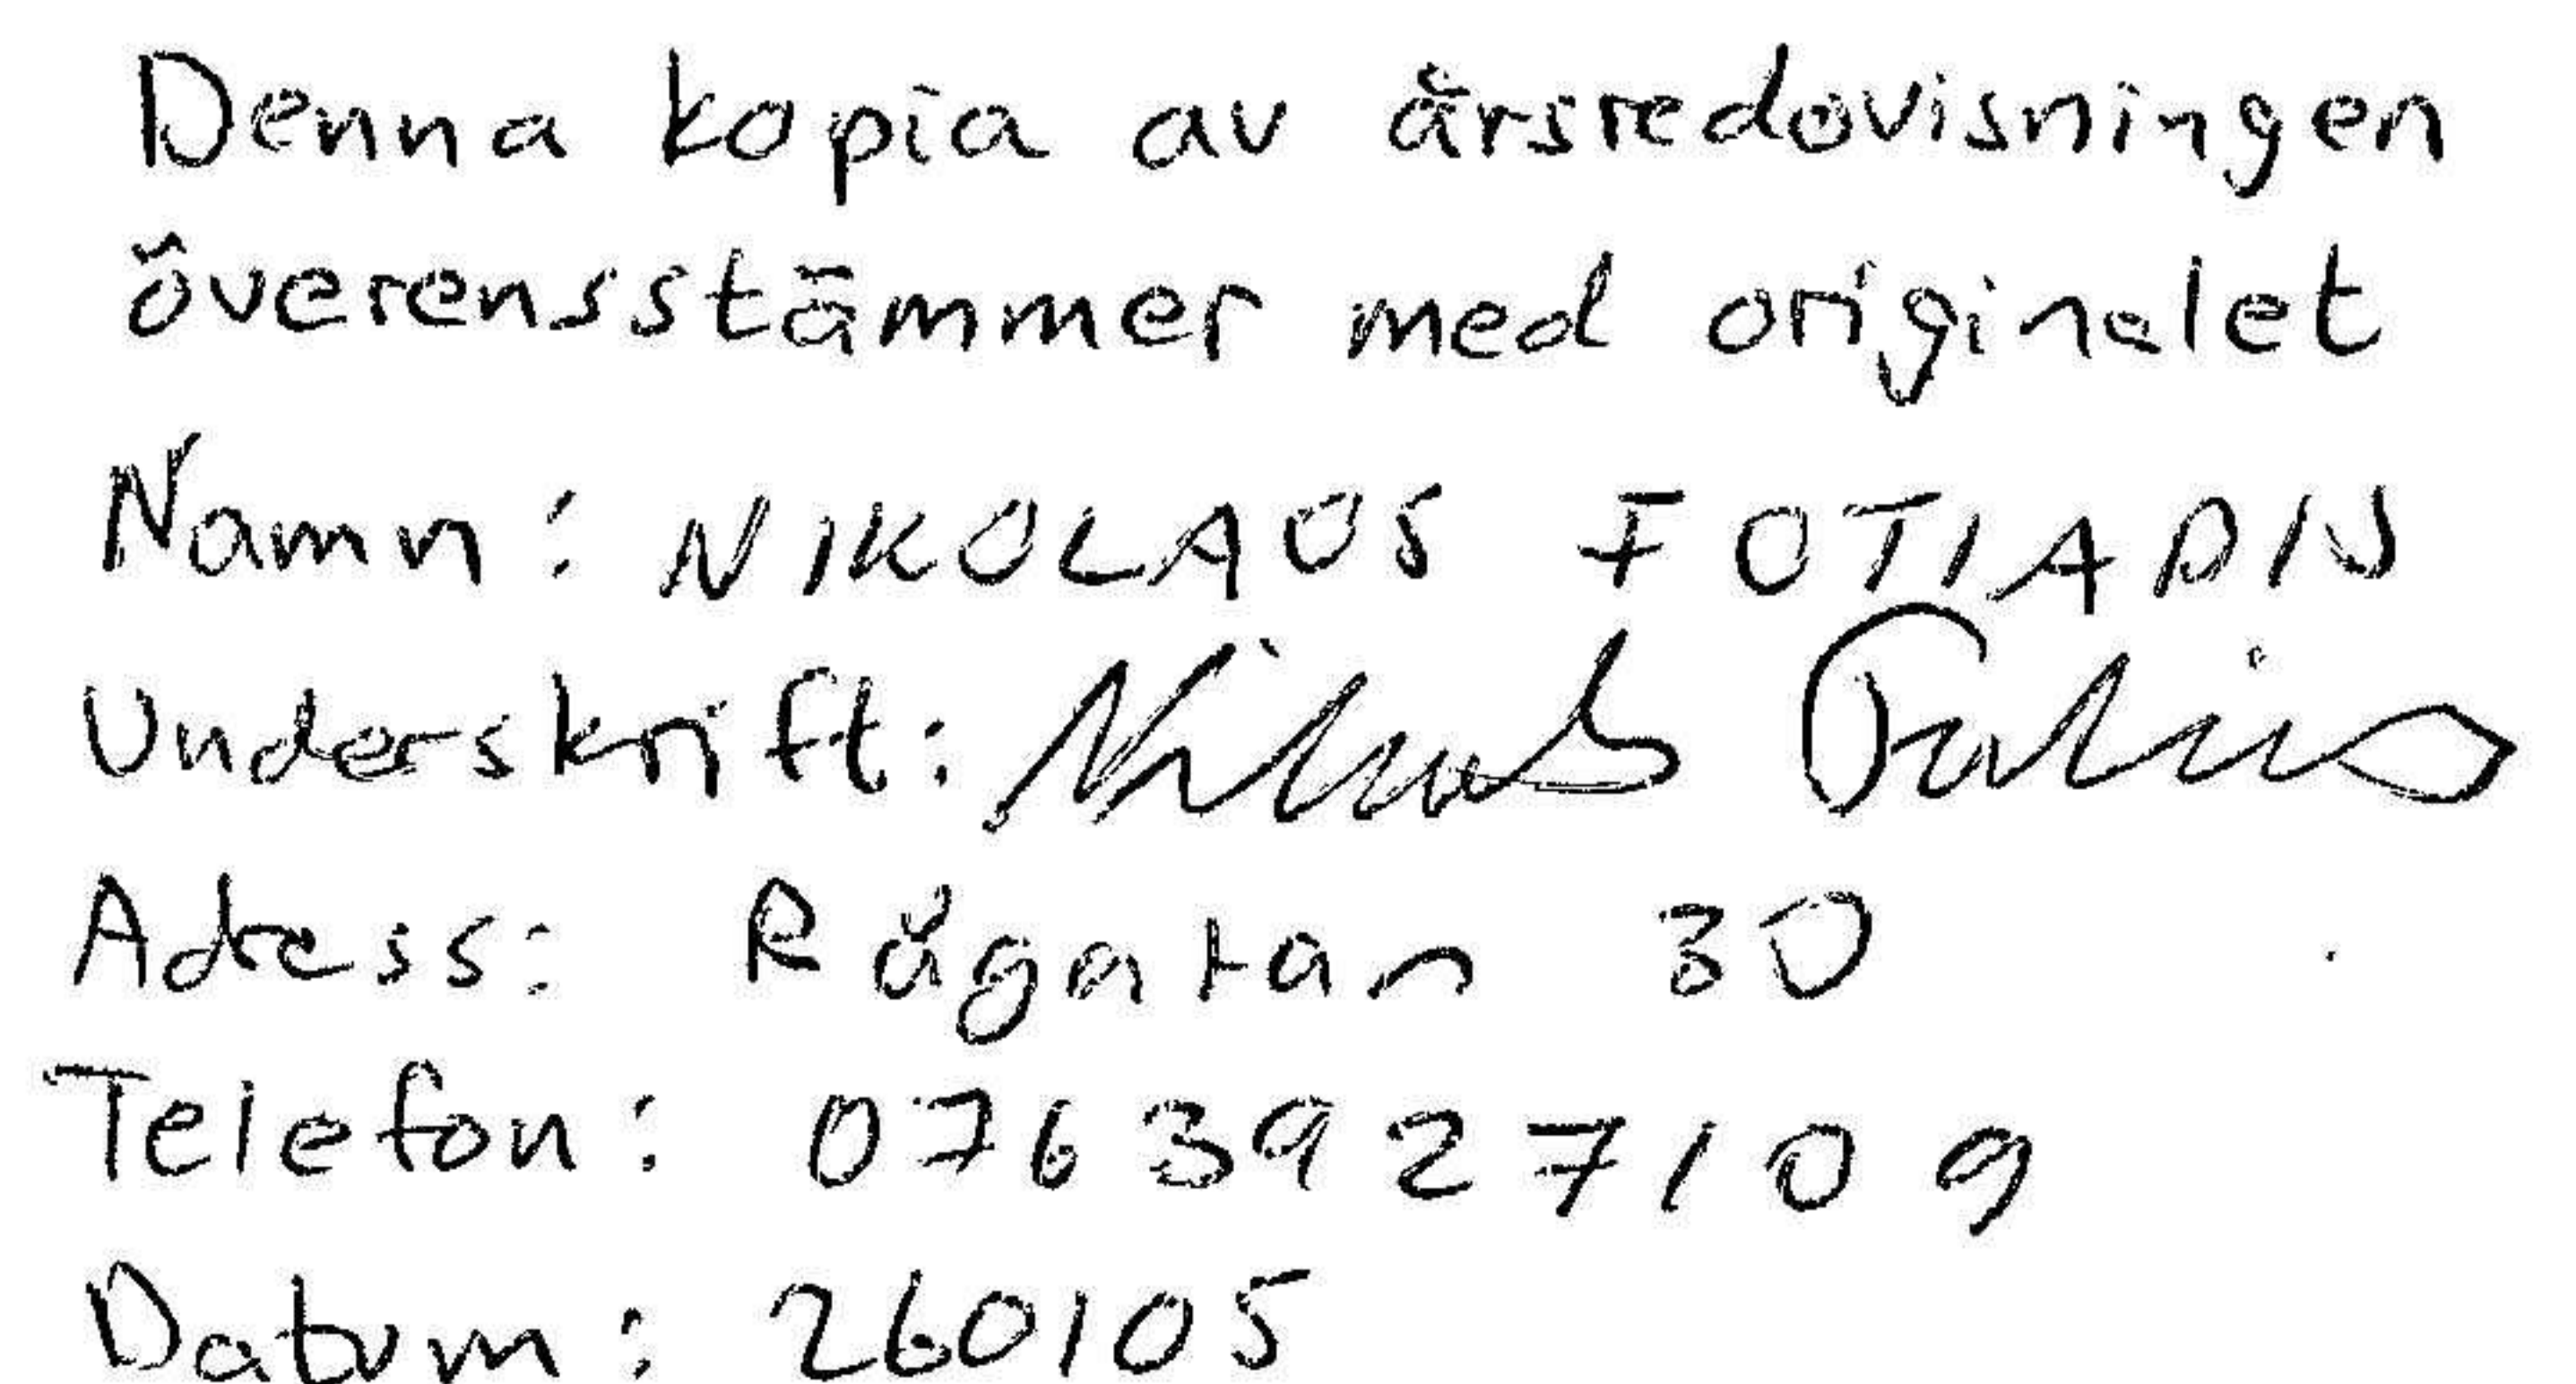 Denna kopia av årsredovisningen
överensstämmer med originalet
Namn: NIKOLAOS FOTIADIS
Underskrift:
Adress: Rågatan 30
Telefon: 0763927109
Datum: 260105